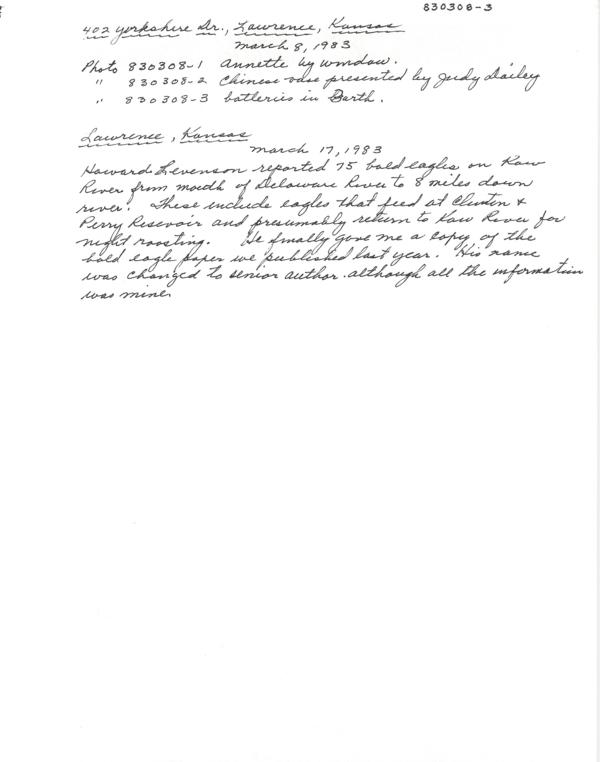 830308-3
402 Yorkshire Dr., Lawrence, Kansas
March 8, 1983
Photo 830308-1 Annette by window.
" 830308-2 Chinese vase presented by Judy Dailey
" 830308-3 batteries in Barth.
Lawrence, Kansas
March 17, 1983
Howard Levenson reported 75 bald eagles on Kaw
River from mouth of Delaware River to 8 miles down
river! These include eagles that feed at Clinton &
Perry Resevoir and presumably return to Kaw River for
night roosting. He finally gave me a copy of the
bald eagle paper we published last year. His name
was changed to senior author although all the information
was mine.